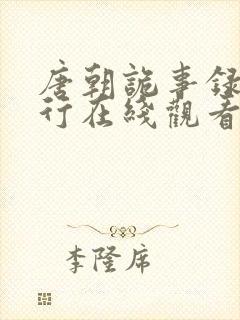 唐朝詭事錄
行在綫觀看
李隆席